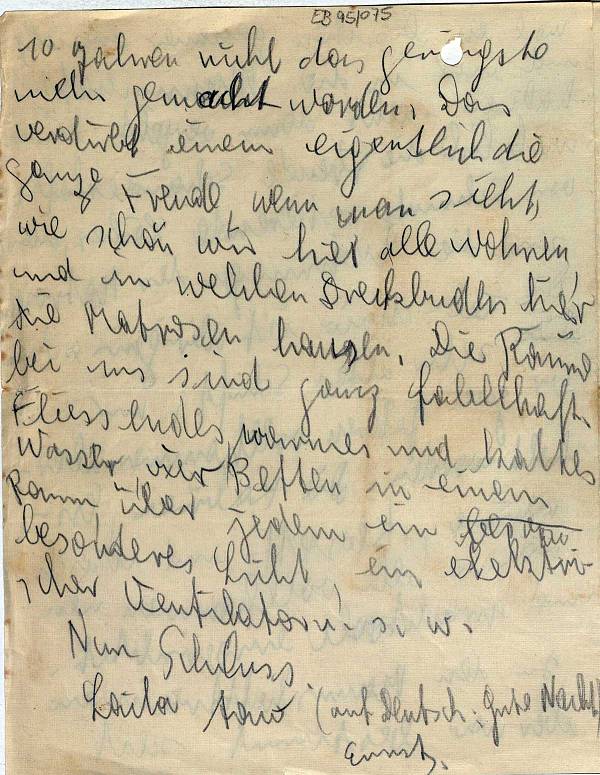 EB 95/075
10 Jahren nicht das geringste
mehr gemacht worden. Das
verdirbt einem eigentlich die
ganze Freude, wenn man sieht,
wie schön wir hier alle wohnen
und in welchen Dreckbuden hier
die Matrosen hausen. Die Räume
bei uns sind ganz fabelhaft.
Fliessendes, warmes und kaltes
Wasser, vier Betten in einem
Raum über jedem ein
besonderes Licht ein elektri-
scher Ventilator u. s. w.
Nun Schluss.
Laila tow (auf deutsch: Gute Nacht)
Ernst.